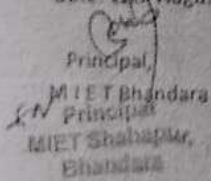 Principal,
MIET Bhandara
Principal
MIET Shahapur,
Bhandara